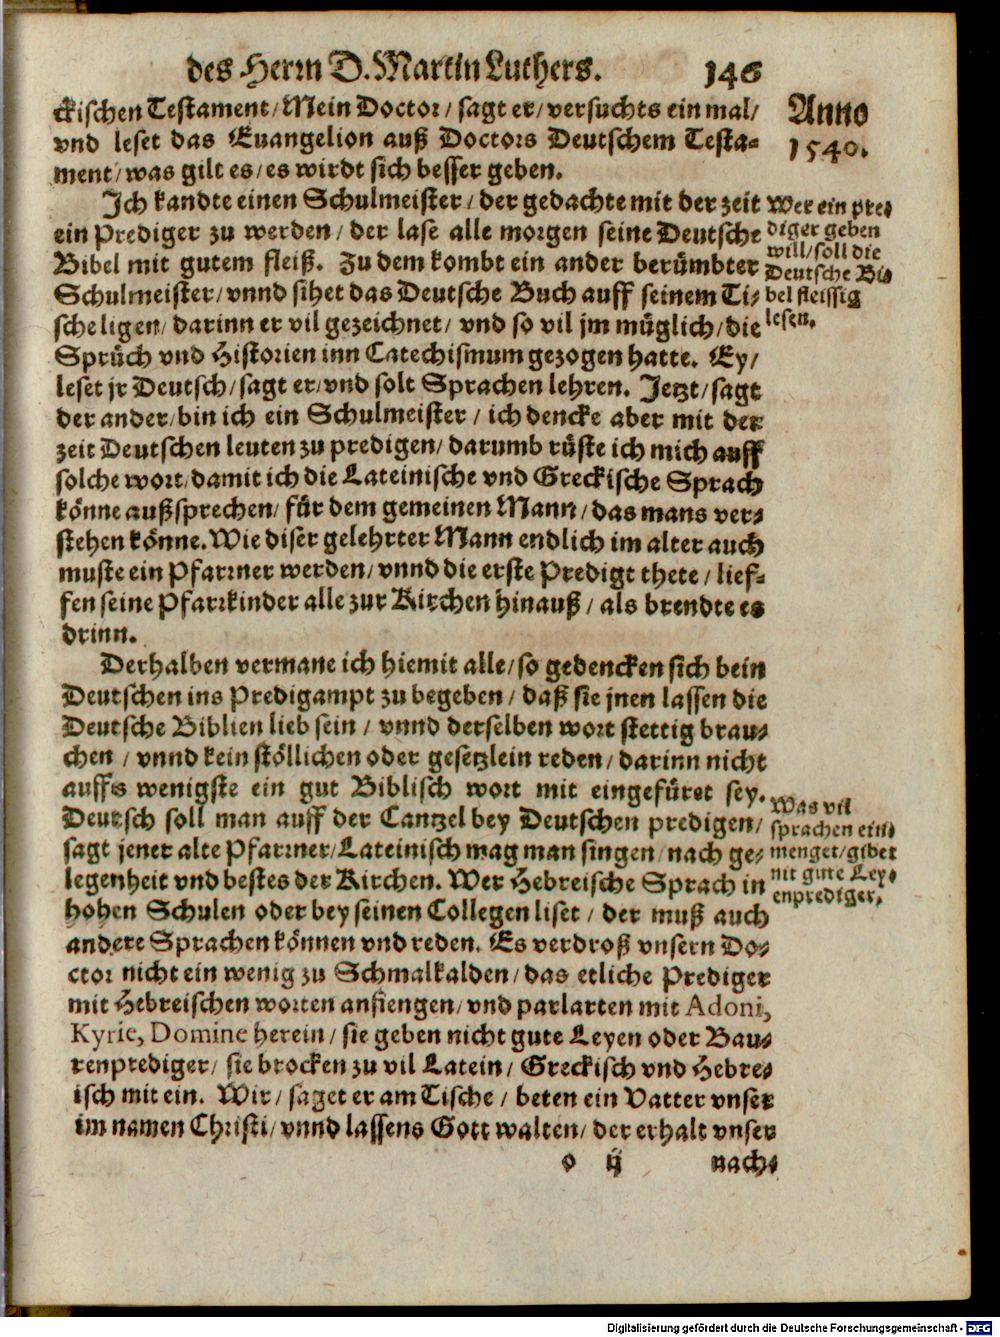 des Herrn D. Martin Luthers. 146
ckischen Testament/ Mein Doctor/ sagt er/ versuchts ein mal/
vnd leset das Euangelion auß Doctors Deutschem Testa-
ment/ was gilt es/ es wirdt sich besser geben.
Anno
1540.
Ich kandte einen Schulmeister/ der gedachte mit der zeit
ein Prediger zu werden/ der lase alle morgen seine Deutsche
Bibel mit gutem fleiß. Zu dem kombt ein ander berümbter
Schulmeister/ vnnd sihet das Deutsche Buch auff seinem Ti-
sche ligen/ darinn er vil gezeichnet/ vnd so vil jm müglich/ die
Sprüch vnd Historien inn Catechismum gezogen hatte. Ey/
leset jr Deutsch/ sagt er/ vnd solt Sprachen lehren. Jetzt/ sagt
der ander/ bin ich ein Schulmeister/ ich dencke aber mit der
zeit Deutschen leuten zu predigen/ darumb rüste ich mich auff
solche wort/ damit ich die Lateinische vnd Greckische Sprach
könne außsprechen/ für dem gemeinen Mann/ das mans ver-
stehen könne. Wie diser gelehrter Mann endlich im alter auch
muste ein Pfarrner werden/ vnnd die erste Predigt thete/ lief-
fen seine Pfarrkinder alle zur Kirchen hinauß/ als brendte es
drinn.
Wer ein pre-
diger geben
will/ soll die
Deutsche Bi-
bel fleissig
lesen.
Derhalben vermane ich hiemit alle/ so gedencken sich bein
Deutschen ins Predigampt zu begeben/ daß sie jnen lassen die
Deutsche Biblien lieb sein/ vnnd derselben wort stettig brau-
chen/ vnnd kein stöllichen oder gesetzlein reden/ darinn nicht
auffs wenigste ein gut Biblisch wort mit eingefüret sey.
Deutsch soll man auff der Cantzel bey Deutschen predigen/
sagt jener alte Pfarrner/ Lateinisch mag man singen/ nach ge-
legenheit vnd bestes der Kirchen. Wer Hebreische Sprach in
hohen Schulen oder bey seinen Collegen liset/ der muß auch
andere Sprachen können vnd reden. Es verdroß vnsern Do-
ctor nicht ein wenig zu Schmalkalden/ das etliche Prediger
mit Hebreischen worten anfiengen/ vnd parlarten mit Adoni,
Kyrie, Domine herein/ sie geben nicht gute Leyen oder Bau-
renprediger/ sie brocken zu vil Latein/ Greckisch vnd Hebre-
isch mit ein. Wir/ saget er am Tische/ beten ein Vatter vnser
im namen Christi/ vnnd lassens Gott walten/ der erhalt vnser
Was vil
sprachen ein-
menget/ gibet
nit gute Ley-
enprediger.
o ij nach-
Digitalisierung gefördert durch die Deutsche Forschungsgemeinschaft - DFG